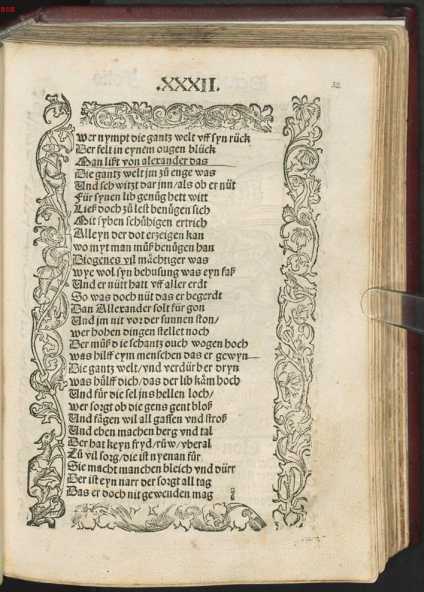 .XXXII.
32
Wer nympt die gantz welt vff syn rück
Der felt in eynem ougen blück
Man lißt von alexander das
Die gantz welt jm zů enge was
Vnd schwitzt dar jnn / als ob er nüt
Für synen lib genůg hett witt
Ließ doch zů lest benůgen sich
Mit syben schůhigen ertrich
Alleyn der dot erzeigen kan
wo myt man můß benůgen han
Diogenes vil mächtiger was
wye wol syn behusung was eyn faß
Vnd er nütt hatt vff aller erdt
So was doch nüt das er begerdt
Dan Allexander solt für gon
Vnd jm nit vor der sunnen ston /
wer hohen dingen stellet noch
Der můß die schantz ouch wogen hoch
was hilff eym menschen das er gewyn
Die gantz welt / vnd verdürb er dryn
was hülff dich / das der lib käm hoch
Vnd für die sel jns hellen loch /
wer sorgt ob die gens gent bloß
Vnd fägen wil all gassen vnd stroß
Vnd eben machen berg vnd tal
Der hat keyn fryd / růw / vberal
Zů vil sorg / die ist nyenan für
Sie macht manchen bleich vnd dürr
Der ist eyn narr der sorgt all tag
Das er doch nit gewenden mag